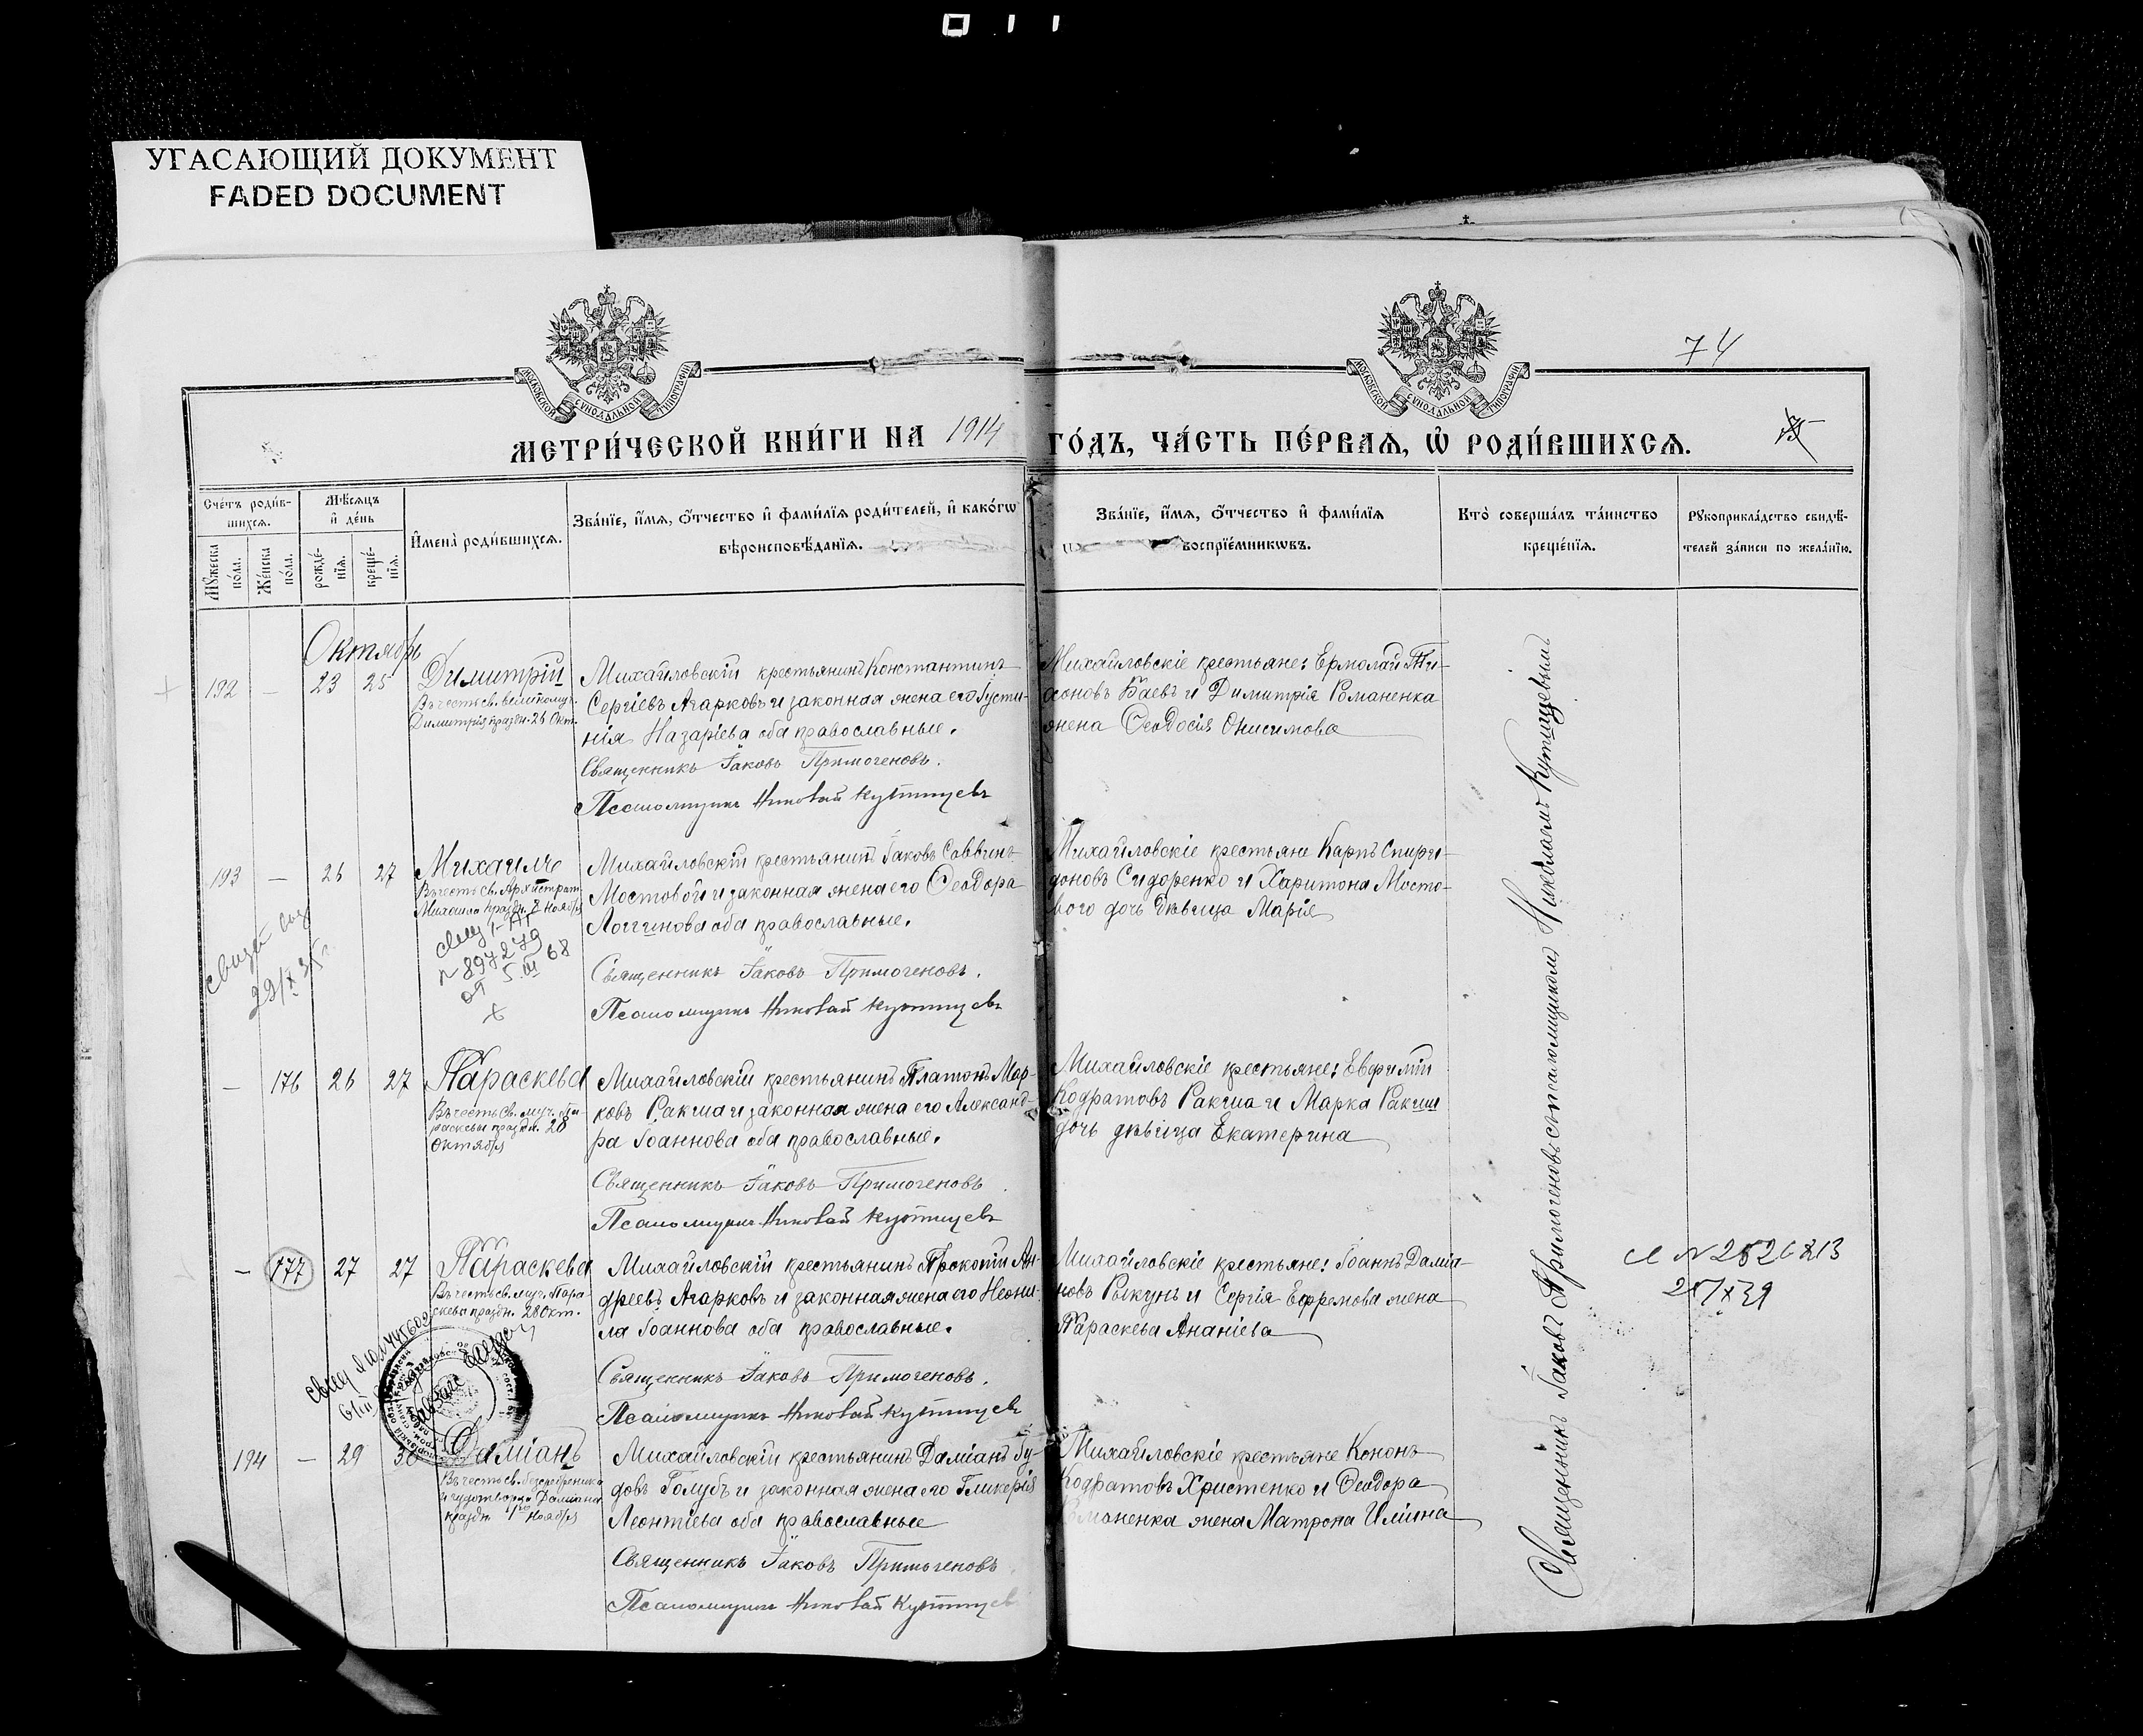 УГАСАЮЩИЙ ДОКУМЕНТ
FADED DOCUMENT
74
МЕТРИ́ЧЕСКОЙ КНИ́ГИ НА 1914 ГО́ДЪ, ЧА́СТЬ ПЕ́РВАѦ, Ѽ РОДИ́ВШИХСѦ.
Сче́тъ роди́в-
шихсѧ.
Мѣ́сѧцъ
и҆ де́нь
Мꙋ́жеска по́ла.
Же́нска по́ла.
рожде́-
нїѧ.
креще́-
нїѧ.
И҆мена̀ роди́вшихсѧ.
Зва́нїе, и҆́мѧ, ѻ҆́тчество и҆ фами́лїѧ роди́телей, и҆ како́гѡ
вѣроисповѣ́данїѧ.
Зва́нїе, и҆́мѧ, ѻ҆́тчество и҆ фами́лїѧ
воспрїе́мникѡвъ.
Кто̀ соверша́лъ та́инство
креще́нїѧ.
Рꙋкоприкла́дство свидѣ́-
телей за́писи по жела́нїю.
Октябрь
192 – 23 25 Димитрій
Въ честь св. великомуч.
Димитрія праздн. 26 Окт.
Михайловскій крестьянинъ Константинъ
Сергіевъ Агарковъ и законная жена его Іусти-
нія Назаріева оба православные.
Священникъ Іаковъ Примогеновъ.
Псаломщикъ Николай Кутищевъ
Михайловскіе крестьяне: Ермолай Ти-
хоновъ Баевъ и Димитрія Романенка
жена Ѳеодосія Онисимова
193 – 26 27 Михаилъ
Въ честь св. Архистрат.
Михаила праздн. 8 Ноября
№ 897279
от 5.III 68
Михайловскій крестьянинъ Іаковъ Саввинъ
Мостовой и законная жена его Ѳеодора
Логгинова оба православные.
Священникъ Іаковъ Примогеновъ.
Псаломщикъ Николай Кутищевъ
Михайловскіе крестьяне Карпъ Спири-
доновъ Сидоренко и Харитона Мосто-
вого дочь дѣвица Марія
– 176 26 27 Параскева
Въ честь св. муч. Па-
раскевы праздн. 28
Октября
Михайловскій крестьянинъ Платонъ Мар-
ковъ Ракша и законная жена его Александ-
ра Іоаннова оба православные.
Священникъ Іаковъ Примогеновъ
Псаломщикъ Николай Кутищевъ
Михайловскіе крестьяне: Евфимій
Кодратовъ Ракша и Марка Ракши
дочь дѣвица Екатерина
– 177 27 27 Параскева
Въ честь св. муч. Пара-
скевы праздн. 28 Окт.
Михайловскій крестьянинъ Прокопій Ан-
дреевъ Агарковъ и законная жена его Неони-
ла Іоаннова оба православные.
Священникъ Іаковъ Примогеновъ.
Псаломщикъ Николай Кутищевъ
Михайловскіе крестьяне: Іоаннъ Даміа-
новъ Рыкунъ и Сергія Ефремова жена
Параскева Ананіева
194 – 29 30 Даміанъ
Въ честь св. безсребренника
и чудотворца Даміана
праздн. 1го Ноября
Михайловскій крестьянинъ Даміанъ Іу-
довъ Голубъ и законная жена его Гликерія
Леонтіева оба православные
Священникъ Іаковъ Примогеновъ
Псаломщикъ Николай Кутищевъ
Михайловскіе крестьяне Кононъ
Кодратовъ Христенко и Ѳеодора
Романенка жена Матрона Иліина
Священникъ Іаковъ Примогеновъ съ псаломщикомъ Николаемъ Кутищевымъ